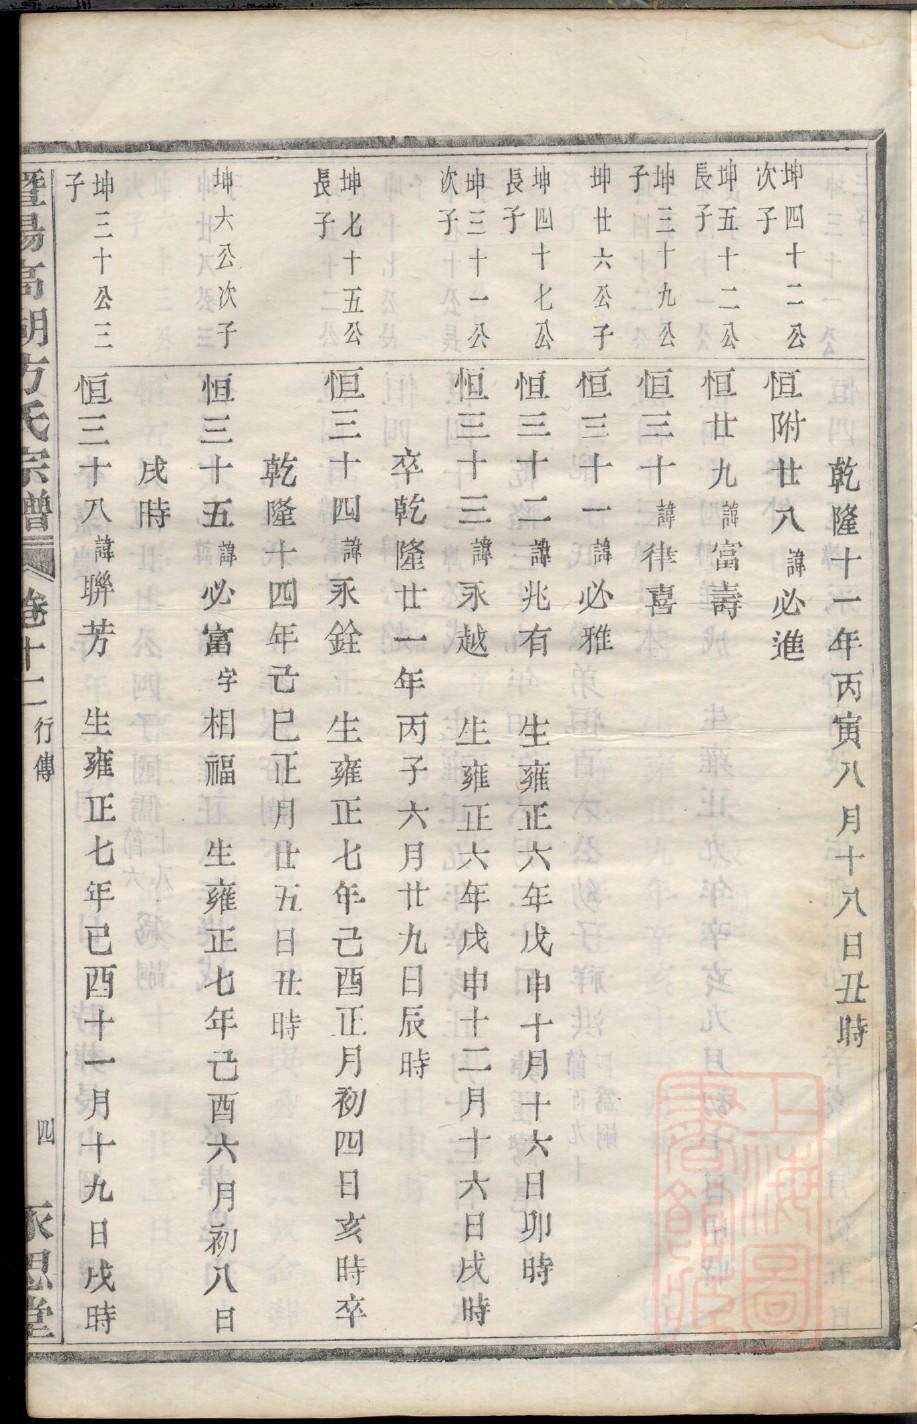 乾隆十一年丙寅八月十八日丑時
坤四十二公次子
恒附廿八諱必進
坤五十二公長子
恒廿九諱富壽
坤三十九公子
恒三十諱律喜
坤廿六公子
恒三十一諱必雅
坤四十七公長子
恒三十二諱兆有 生雍正六年戊申十月十六日卯時
坤三十一公次子
恒三十三諱永越 生雍正六年戊申十二月十六日戌時
卒乾隆廿一年丙子六月廿九日辰時
坤七十五公長子
恒三十四諱永銓 生雍正七年己酉正月初四日亥時卒
乾隆十四年己巳正月廿五日丑時
坤六公次子
恒三十五諱必富字相福 生雍正七年己酉六月初八日
戌時
坤三十公三子
恒三十八諱聯芳 生雍正七年己酉十一月十九日戌時
暨陽高湖方氏宗譜 卷十二 行傳 四 永思堂
上海圖書館藏